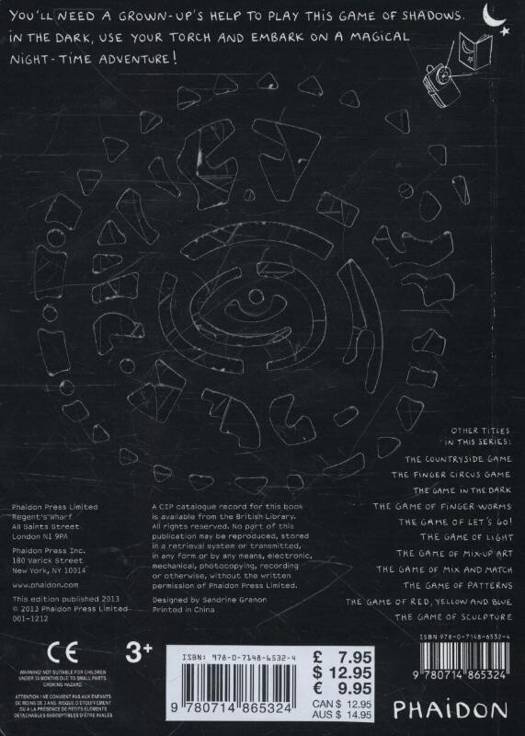 YOU'LL NEED A GROWN-UP'S HELP TO PLAY THIS GAME OF SHADOWS.
IN THE DARK, USE YOUR TORCH AND EMBARK ON A MAGICAL
NIGHT-TIME ADVENTURE!
OTHER TITLES
IN THIS SERIES:
THE COUNTRYSIDE GAME
THE FINGER CIRCUS GAME
THE GAME IN THE DARK
THE GAME OF FINGER WORMS
THE GAME OF LET'S GO!
THE GAME OF LIGHT
THE GAME OF MIX-UP ART
THE GAME OF MIX AND MATCH
THE GAME OF PATTERNS
THE GAME OF RED, YELLOW AND BLUE
THE GAME OF SCULPTURE
Phaidon Press Limited
Regent's Wharf
All Saints Street
London N1 9PA
Phaidon Press Inc.
180 Varick Street
New York, NY 10014
www.phaidon.com
This edition published 2013
© 2013 Phaidon Press Limited
001-1212
A CIP catalogue record for this book
is available from the British Library.
All rights reserved. No part of this
publication may be reproduced, stored
in a retrieval system or transmitted,
in any form or by any means, electronic,
mechanical, photocopying, recording
or otherwise, without the written
permission of Phaidon Press Limited.
Designed by Sandrine Granon
Printed in China
CE
3+
WARNING! NOT SUITABLE FOR CHILDREN
UNDER 36 MONTHS OLD TO SMALL PARTS.
CHOKING HAZARD.
ATTENTION ! NE CONVIENT PAS AUX ENFANTS
DE MOINS DE 3 ANS. RISQUE D'ÉTOUFFEMENT
DÛ À LA PRÉSENCE DE PETITS ÉLÉMENTS
DÉTACHABLES SUSCEPTIBLES D'ÊTRE AVALÉS
ISBN: 978-0-7148-6532-4
9 780714 865324
£ 7.95
$ 12.95
€ 9.95
CAN $ 12.95
AUS $ 14.95
ISBN 978-0-7148-6532-4
9 780714 865324
PHAIDON